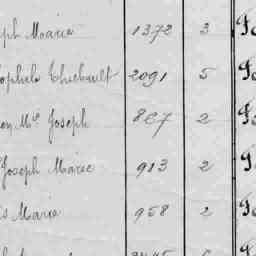 ph Marie 1372 3 Fo
ophile Thiebault 2091 5 Fo
Joseph 867 2 Fo
Joseph Marie 913 2 Fo
s Marie 958 2 Fo